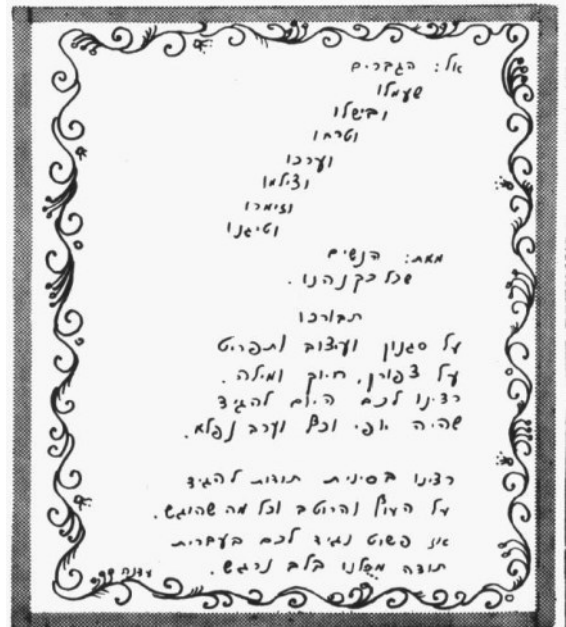 אל: הגברים
שעמלו
ובישלו
וטרחו
וערכו
וצילמו
וזימרו
וטיגנו
מאת: הנשים
שכל כך נהנו.
תבורכו
על סגנון ועיצוב ותפריט
על צפורן, חיוך ומילה.
רצינו לכם היום להגיד
שהיה יופי וכיף וערב נפלא.
רצינו בסינית תודות להגיד
על העוף והרוטב וכל מה שהוגש.
אז פשוט נגיד לכם בעברית
תודה מכלנו בלב נרגש.
עדנה